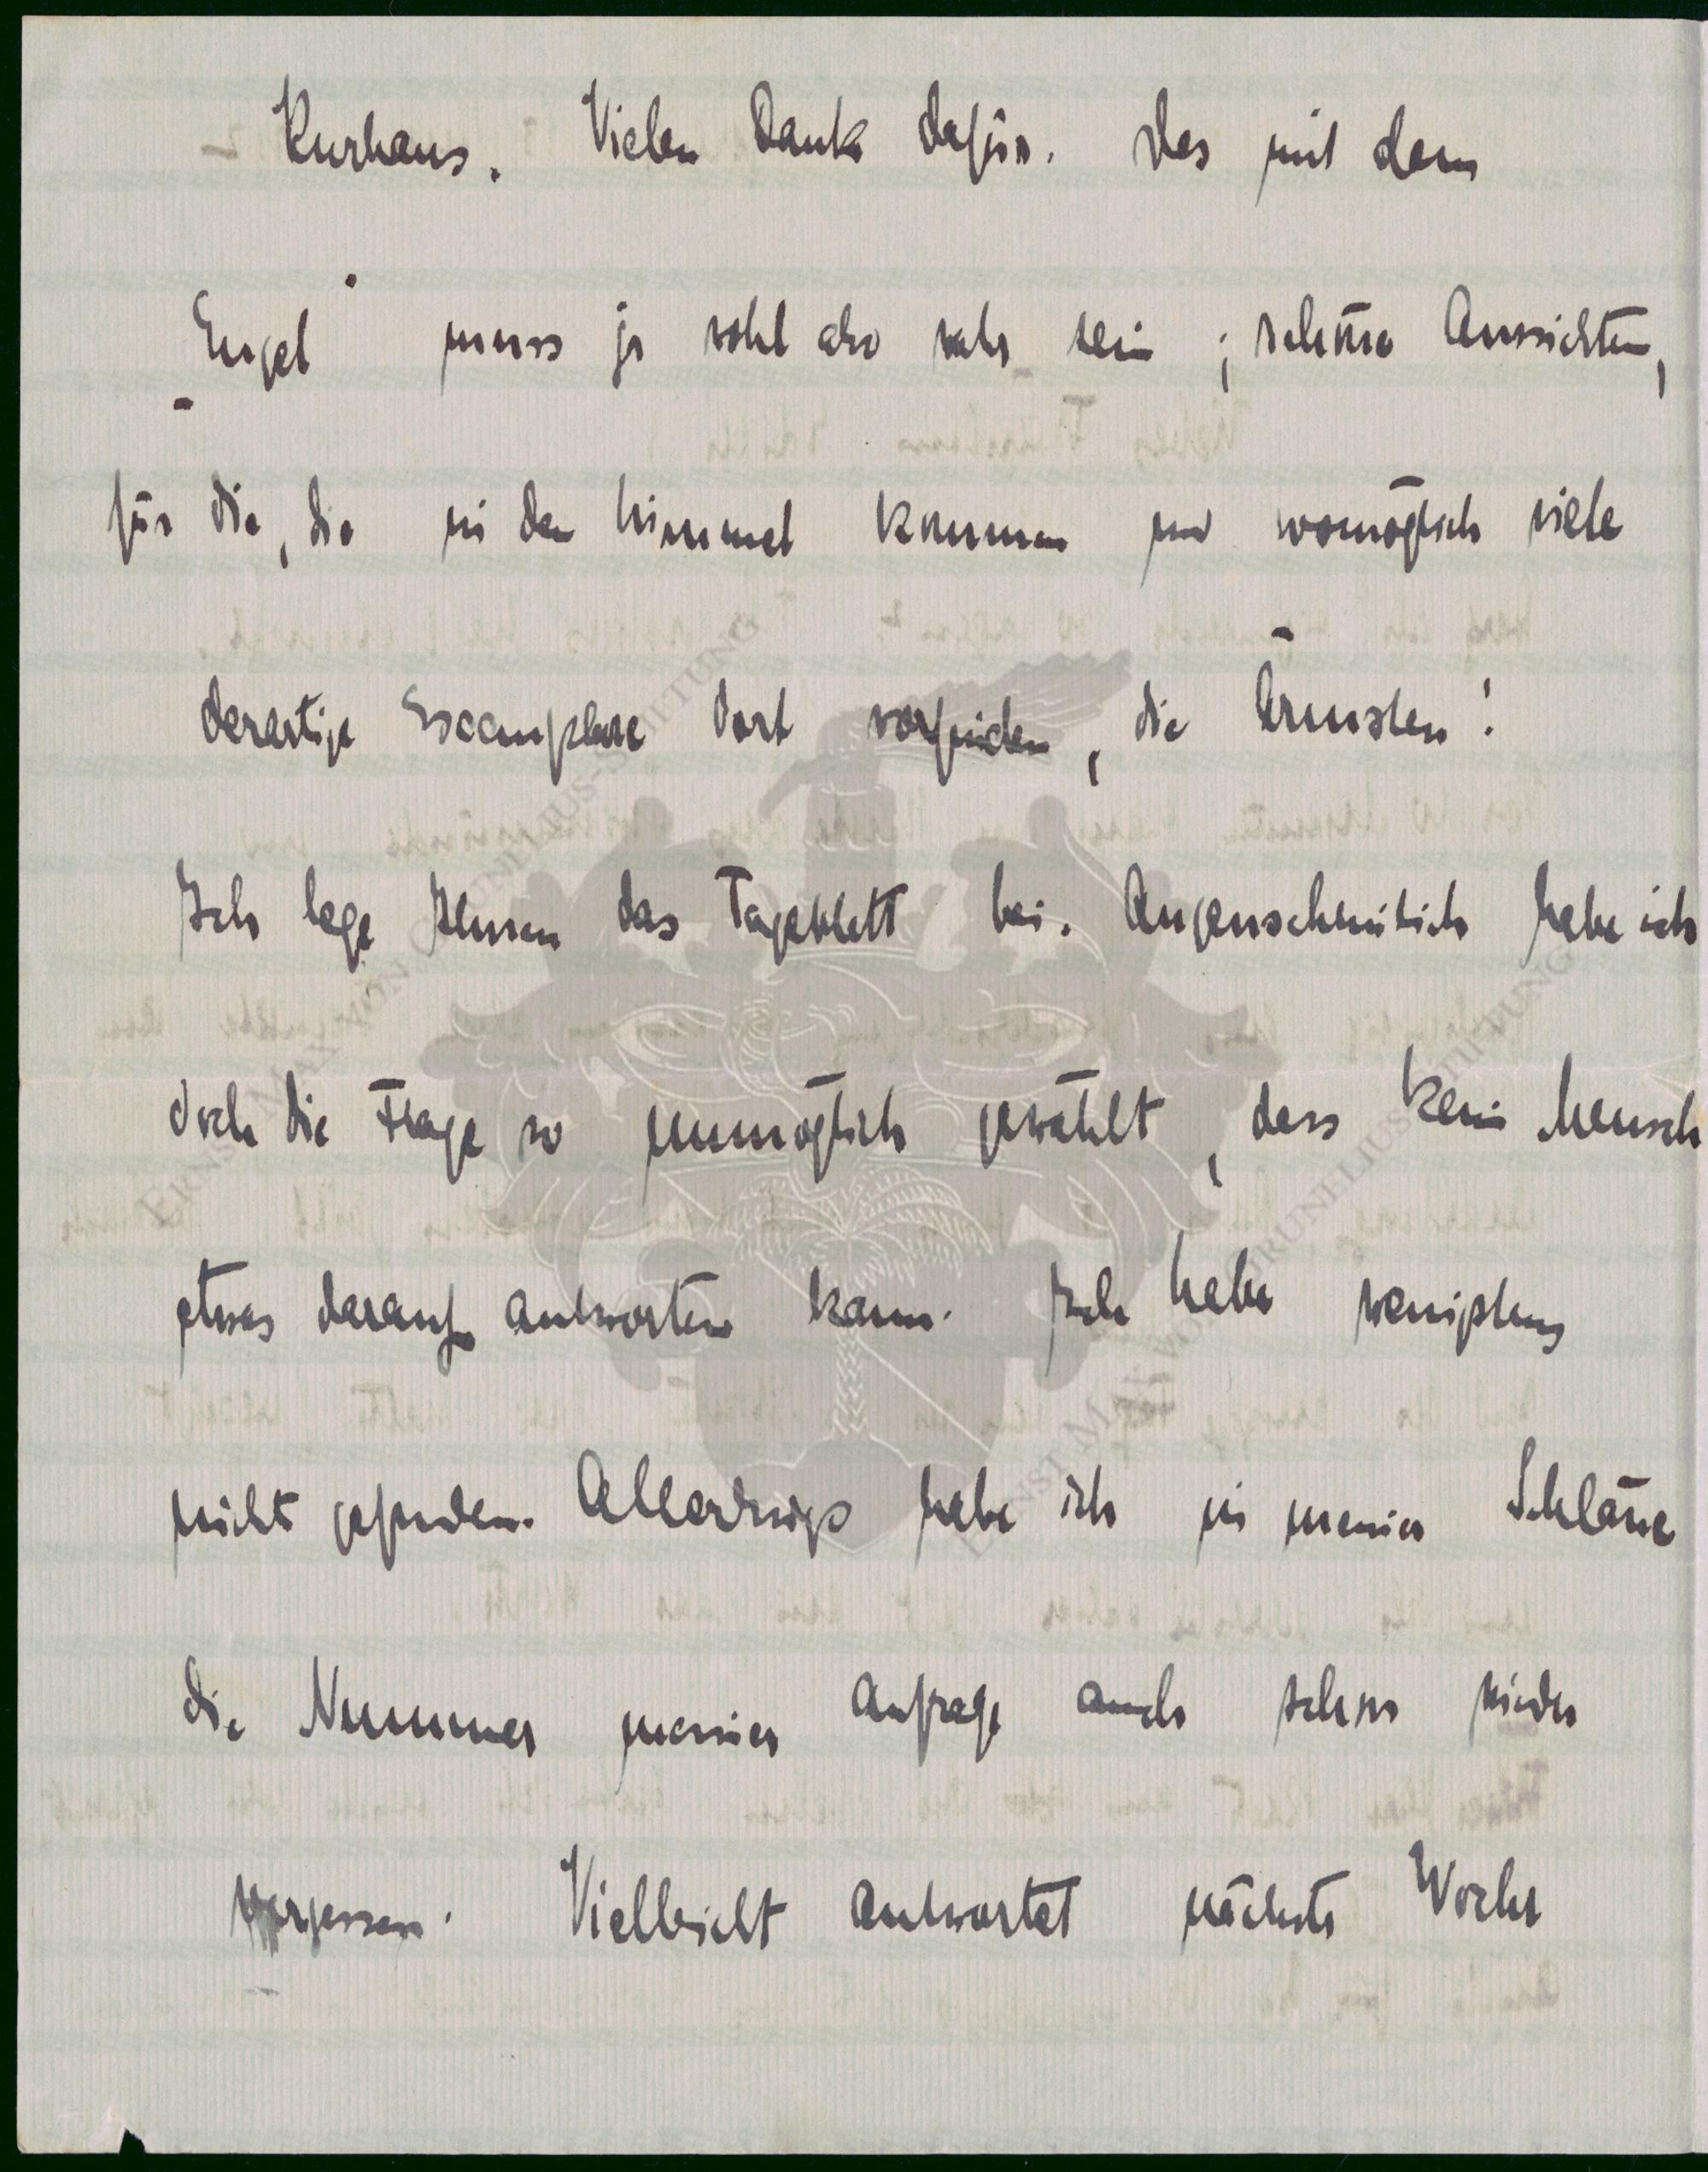 Kurhaus. Vielen Dank dafür. Das mit dem
„Engel" muss ja wohl also wahr sein; schöne Aussichten,
für die, die in den Himmel kommen und womöglich viele
derartige Exemplare dort vorfinden, die Ärmsten!
Ich lege Ihnen das Tageblatt bei. Augenscheinlich habe ich
doch die Frage so unmöglich gewählt, dass kein Mensch
etwas darauf antworten kann. Ich habe wenigstens
nichts gefunden. Allerdings habe ich in meiner Schläue
die Nummer meiner Anfrage auch schon wieder
vergessen. Vielleicht antwortet nächste Woche
ERNST MAX VON GRUNELIUS-STIFTUNG
ERNST MAX VON GRUNELIUS-STIFTUNG